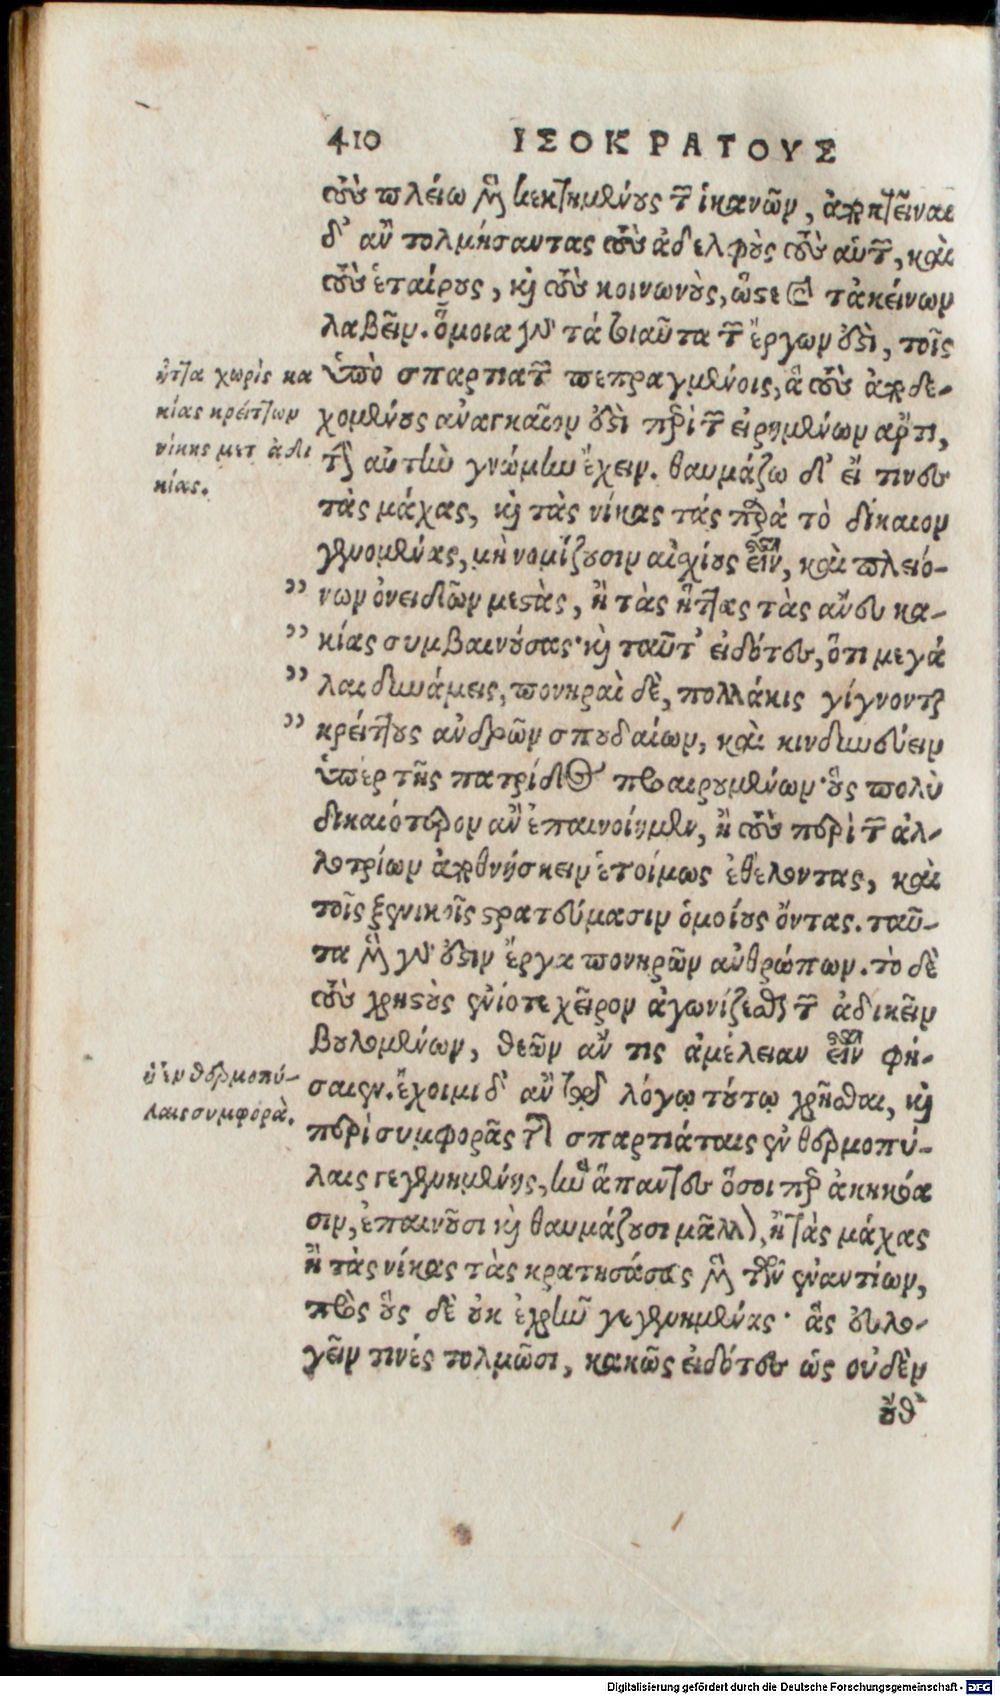 410 ΙΣΟΚΡΑΤΟΥΣ
τοὺς πλείω μὲν κεκτημένους τῶν ἱκανῶν, ἀποκτεῖναι
δ' ἂν τολμήσαντας τοὺς ἀδελφοὺς τοὺς αὑτῶν, καὶ
τοὺς ἑταίρους, καὶ τοὺς κοινωνοὺς, ὥστε καὶ τἀκείνων
λαβεῖν. ὅμοια γὰρ τὰ τοιαῦτα τῶν ἔργων ἐστὶ, τοῖς
ὑπὸ σπαρτιατῶν πεπραγμένοις, ἃ τοὺς ἀποδε-
χομένους ἀναγκαῖόν ἐστι περὶ τῶν εἰρημένων ἄρτι,
τὴν αὐτὴν γνώμην ἔχειν. θαυμάζω δ' εἴ τινες
τὰς μάχας, καὶ τὰς νίκας τάς παρὰ τὸ δίκαιον
γενομένας, μὴ νομίζουσιν αἰσχίους εἶναι, καὶ πλειό-
” νων ὀνειδῶν μεστὰς, ἢ τὰς ἥττας τὰς ἄνευ κα-
” κίας συμβαινούσας· καὶ ταῦτ' εἰδότες, ὅτι μεγά
” λαι δυνάμεις, πονηραὶ δὲ, πολλάκις γίγνονται
” κρείττους ἀνδρῶν σπουδαίων, καὶ κινδυνεύειν
ὑπὲρ τῆς πατρίδος προαιρουμένων· οὓς πολὺ
δικαιότερον ἂν ἐπαινοίημεν, ἢ τοὺς περὶ τῶν ἀλ-
λοτρίων ἀποθνήσκειν ἑτοίμως ἐθέλοντας, καὶ
τοῖς ξενικοῖς στρατεύμασιν ὁμοίους ὄντας. ταῦ-
τα μὲν γάρ ἐστιν ἔργα πονηρῶν ἀνθρώπων. τὸ δὲ
τοὺς χρηστοὺς ἐνίοτε χεῖρον ἀγωνίζεσθαι τῶν ἀδικεῖν
βουλομένων, θεῶν ἄν τις ἀμέλειαν εἶναι φή-
σαιεν. ἔχοιμι δ' ἂν τῷ λόγῳ τούτῳ χρῆσθαι, καὶ
περὶ συμφορᾶς τῆς σπαρτιάταις ἐν θερμοπύ-
λαις γεγενημένης, ἣν ἅπαντες ὅσοι περ ἀκηκόα
σιν, ἐπαινοῦσι καὶ θαυμάζουσι μᾶλλον, ἢ τὰς μάχας
ἢ τὰς νίκας τὰς κρατησάσας μὲν τῶν ἐναντίων,
πρὸς οὓς δὲ οὐκ ἐχρῆν γεγενημένας· ἃς εὐλο-
γεῖν τινές τολμῶσι, κακῶς εἰδότες ὡς οὐδὲν
οὔθ'
ἧττα χωρὶς κα
κίας κρείττων
νίκης μετ' ἀδι
κίας.
ἡ ἐν θερμοπύ-
λαις συμφορὰ.
Digitalisierung gefördert durch die Deutsche Forschungsgemeinschaft - DFG